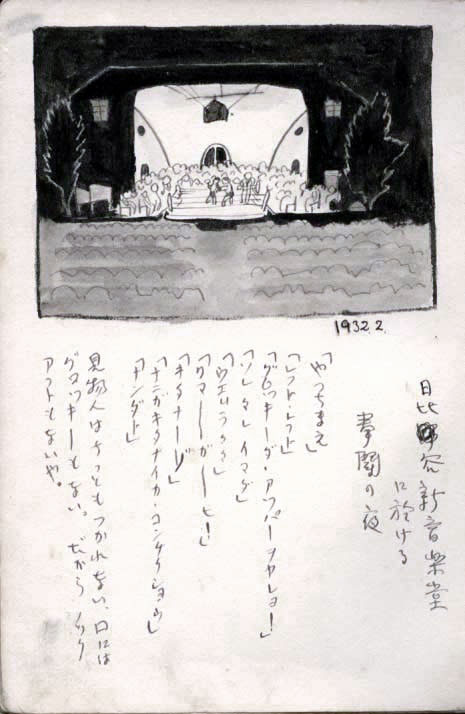 1932.2.
日比野谷新音楽堂
に於ける
拳闘の夜
「やっちまえ」
「レフト、レフト」
「グロッキーダ・アッパーヲヤレヨー！」
「ソレ、タレ、イマダ」
「ウエルうゥゥ」
「ワマー〳〵ガーヒー！」
「キタナーゾ」
「ナニガキタナイカ・コンチクショウ」
「ナンダト」
見物人はちっともつかれない、口には
グロッキーもない。だから ノック
アウトもないや。